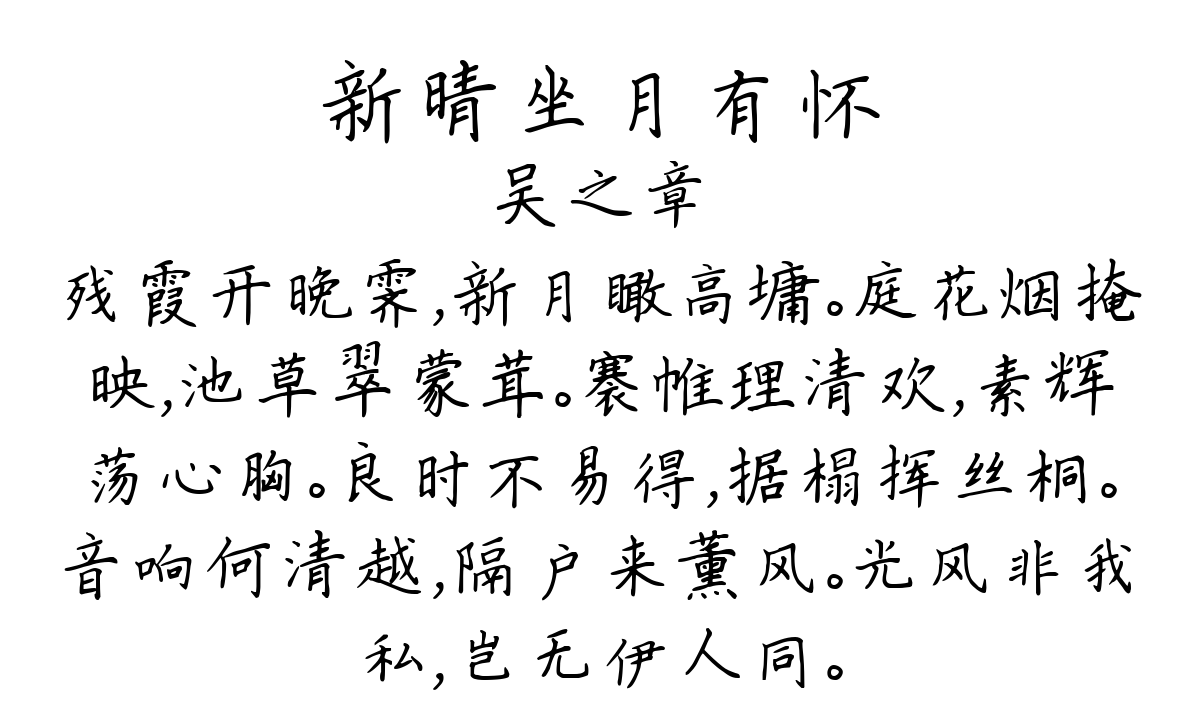 新晴坐月有怀
吴之章
残霞开晚霁,新月瞰高墉。庭花烟掩
映,池草翠蒙茸。褰帷理清欢,素辉
荡心胸。良时不易得,据榻挥丝桐。
音响何清越,隔户来薰风。光风非我
私,岂无伊人同。